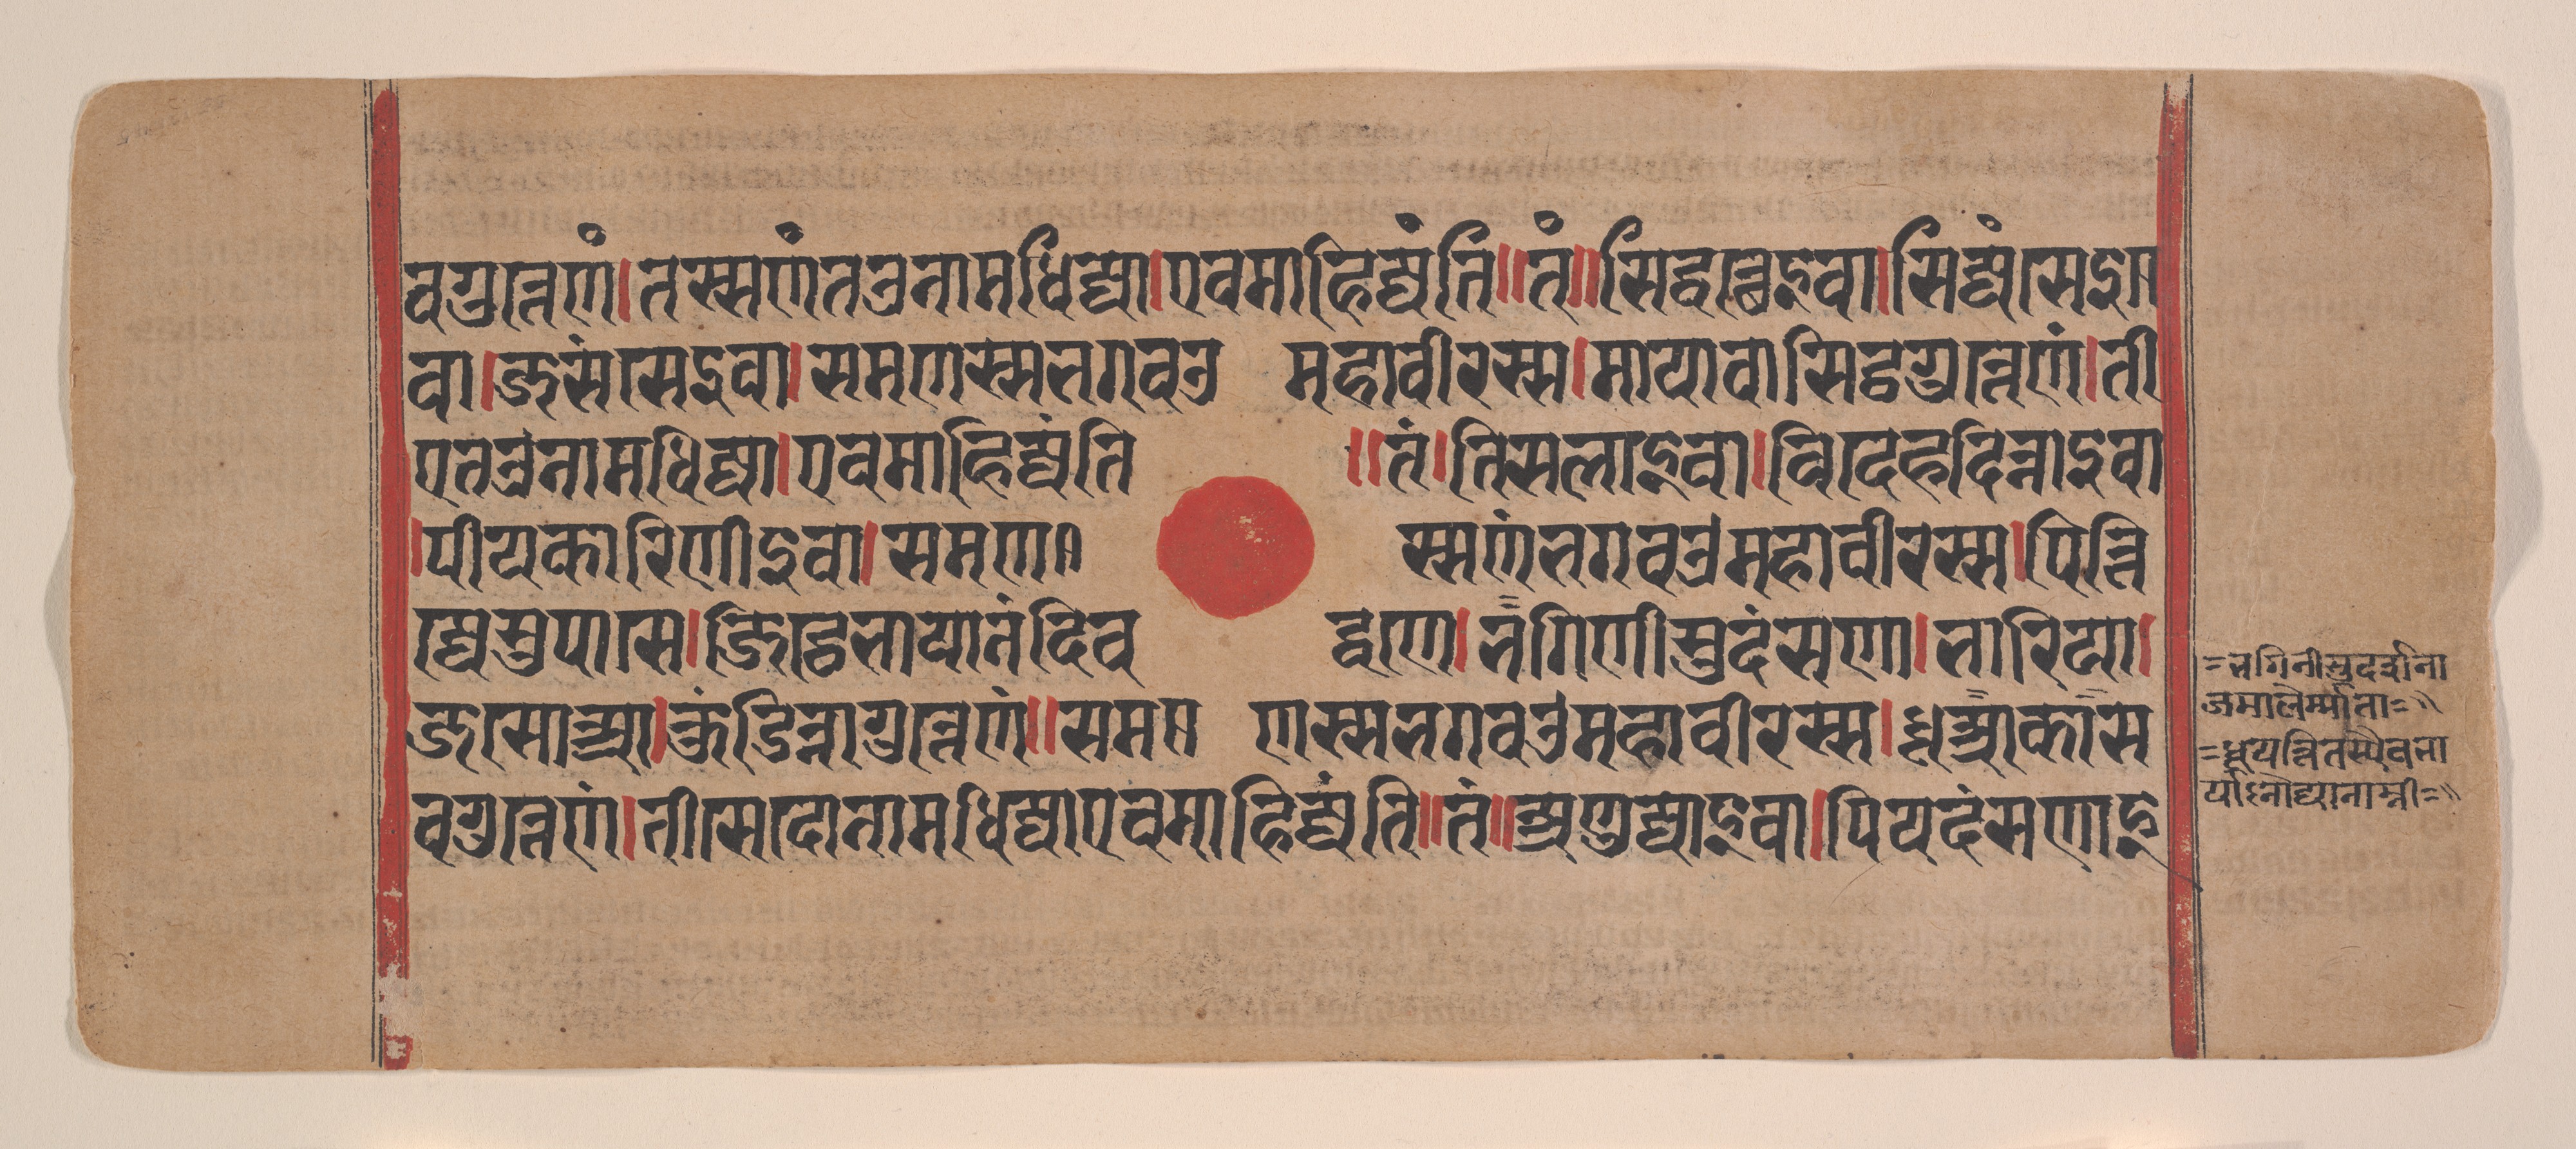 वगुत्तेणं।तस्सणंतउनामधिज्जा।एवमाहिज्जंति॥तं॥सिद्धत्थेइवा।सिज्जंसेइ
वा।जसंसेइवा।समणस्सभगवउमहावीरस्स।मायावासिट्ठगुत्तेणं।ती
एतउनामधिज्जा।एवमाहिज्जंति॥तं।तिसलाइवा।विदेहदिन्नाइवा
।पीयकारिणीइवा।समणस्सणंभगवउमहावीरस्स।पित्ति
ज्जेसुपासे।जिट्ठेभायानंदिवद्धणे।भगिणीसुदंसणा।भारिया।
जसोआ।कुंडिन्नागुत्तेणं॥समणस्सभगवउमहावीरस्स।धूआकास
वगुत्तेणं।तीसेदोनामधिज्जाएवमाहिज्जंति॥तं॥अणुज्जाइवा।पियदंसणाइ
=भगिनीसुदर्शना
जमालेर्माता=॥
=धूयत्तितस्यैवभा